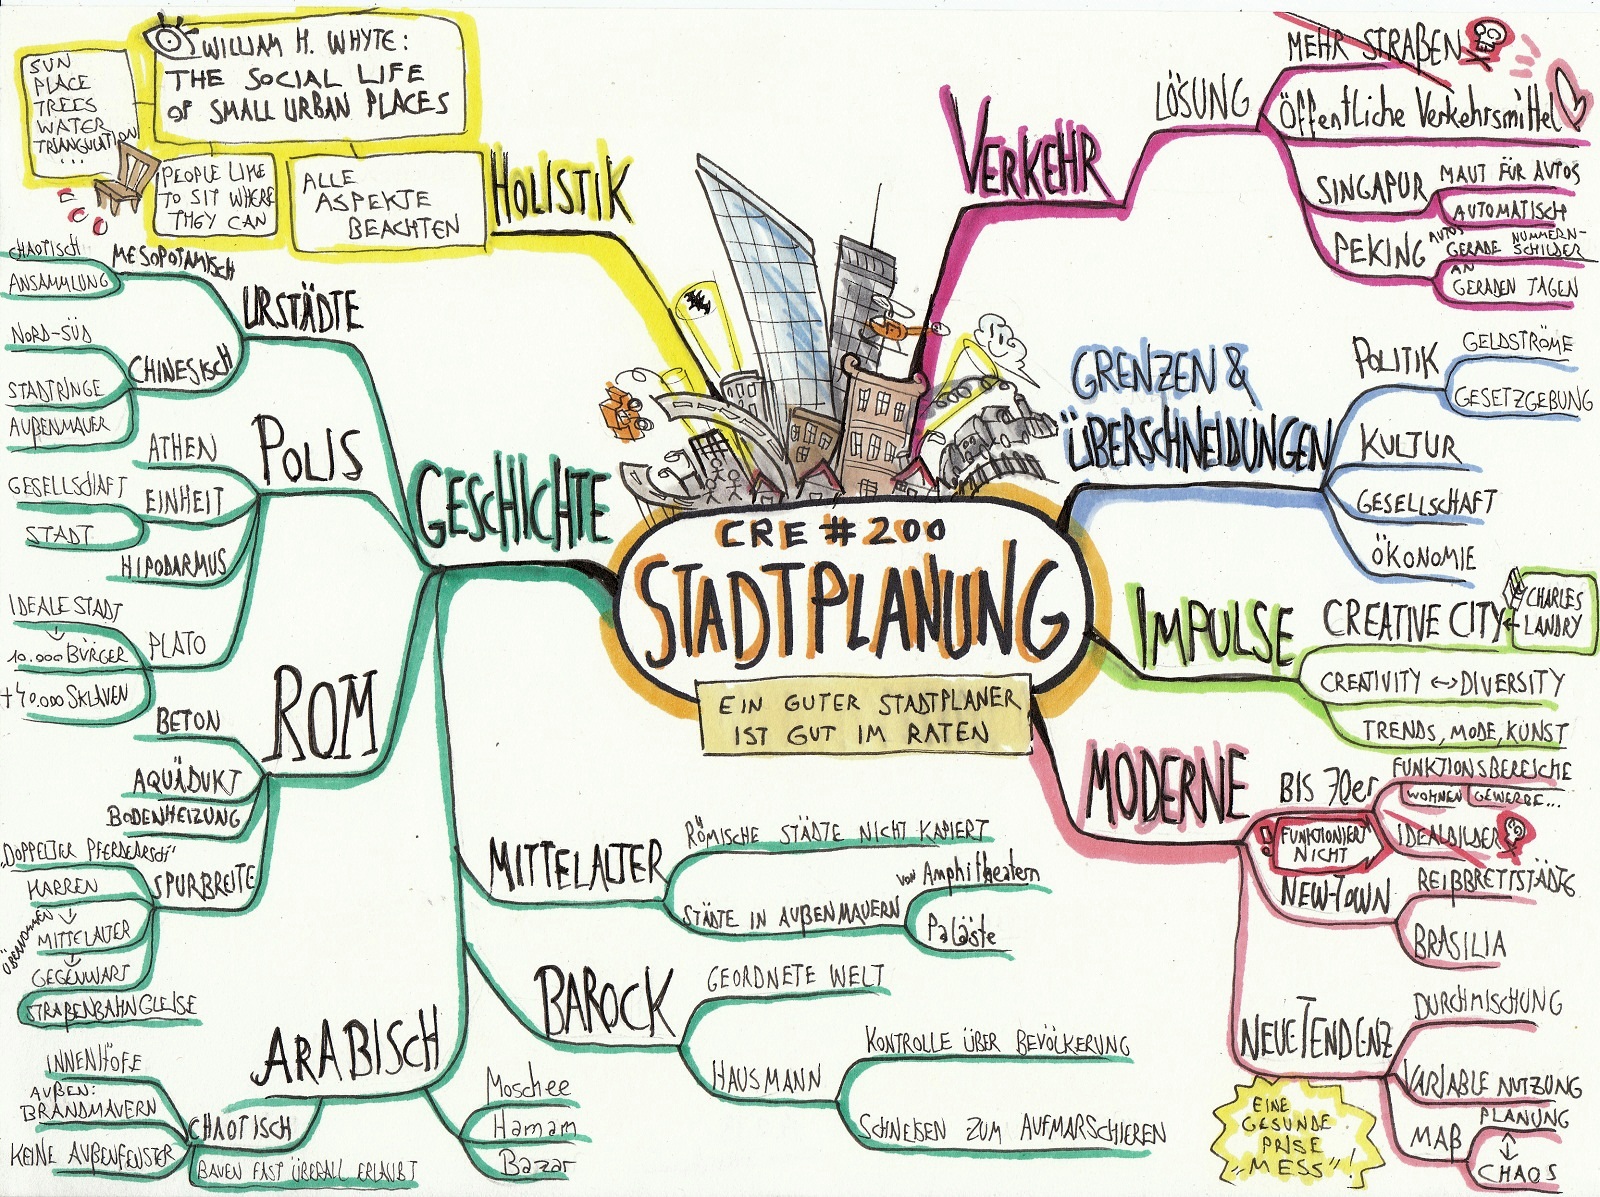 CRE #200
STADTPLANUNG
EIN GUTER STADTPLANER
IST GUT IM RATEN
HOLISTIK
WILLIAM H. WHYTE:
THE SOCIAL LIFE
OF SMALL URBAN PLACES
SUN
PLACE
TREES
WATER
TRIANGULATION
...
PEOPLE LIKE
TO SIT WHERE
THEY CAN
ALLE
ASPEKTE
BEACHTEN
GESCHICHTE
URSTÄDTE
MESOPOTAMISCH
CHAOTISCH
ANSAMMLUNG
CHINESISCH
NORD-SÜD
STADTRINGE
AUßENMAUER
POLIS
ATHEN
EINHEIT
GESELLSCHAFT
STADT
HIPODARMUS
PLATO
IDEALE STADT
↓
10.000 BÜRGER
+40.000 SKLAVEN
ROM
BETON
AQUÄDUKT
BODENHEIZUNG
SPURBREITE
„DOPPELTER PFERDEARSCH"
KARREN
↓
MITTELALTER
↓
GEGENWART
ÜBERNOMMEN
STRAßENBAHNGLEISE
ARABISCH
CHAOTISCH
INNENHÖFE
AUßEN:
BRANDMAUERN
KEINE AUßENFENSTER
BAUEN FAST ÜBERALL ERLAUBT
Moschee
Hamam
Bazar
MITTELALTER
RÖMISCHE STÄDTE NICHT KAPIERT
STÄDTE IN AUßENMAUERN
VON Amphitheatern
Paläste
BAROCK
GEORDNETE WELT
HAUSMANN
KONTROLLE ÜBER BEVÖLKERUNG
SCHNEISEN ZUM AUFMARSCHIEREN
VERKEHR
LÖSUNG
MEHR STRAßEN
Öffentliche Verkehrsmittel
SINGAPUR
MAUT FÜR AUTOS
AUTOMATISCH
PEKING
AUTOS
GERADE NUMMERN-
SCHILDER
AN
GERADEN TAGEN
GRENZEN &
ÜBERSCHNEIDUNGEN
POLITIK
GELDSTRÖME
GESETZGEBUNG
KULTUR
GESELLSCHAFT
ÖKONOMIE
IMPULSE
CREATIVE CITY ←
CHARLES
LANDRY
CREATIVITY ↔ DIVERSITY
TRENDS, MODE, KUNST
MODERNE
BIS 70er
FUNKTIONIERT
NICHT
!
FUNKTIONSBEREICHE
WOHNEN GEWERBE...
IDEALBILDER
NEW-TOWN
REIßBRETTSTÄDTE
BRASILIA
NEUE TENDENZ
DURCHMISCHUNG
VARIABLE NUTZUNG
MAß
PLANUNG
↕
CHAOS
EINE
GESUNDE
PRISE
„MESS"!